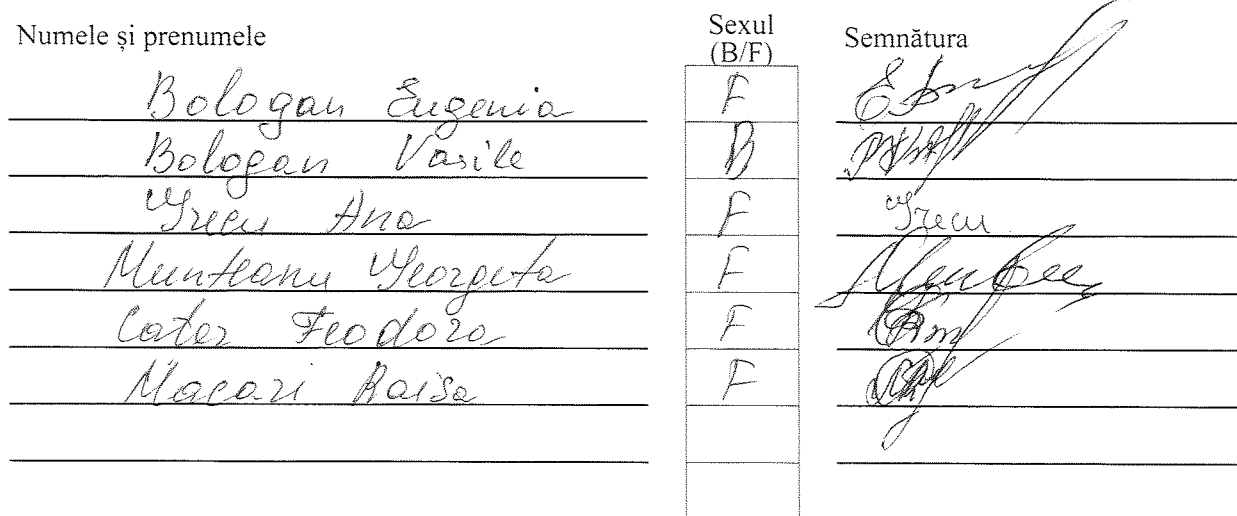 Numele și prenumele Sexul (B/F) Semnătura
Bologan Eugenia F
Bologan Vasile B
Grecu Ana F Grecu
Munteanu Georgeta F
Cater Feodora F
Macari Raisa F